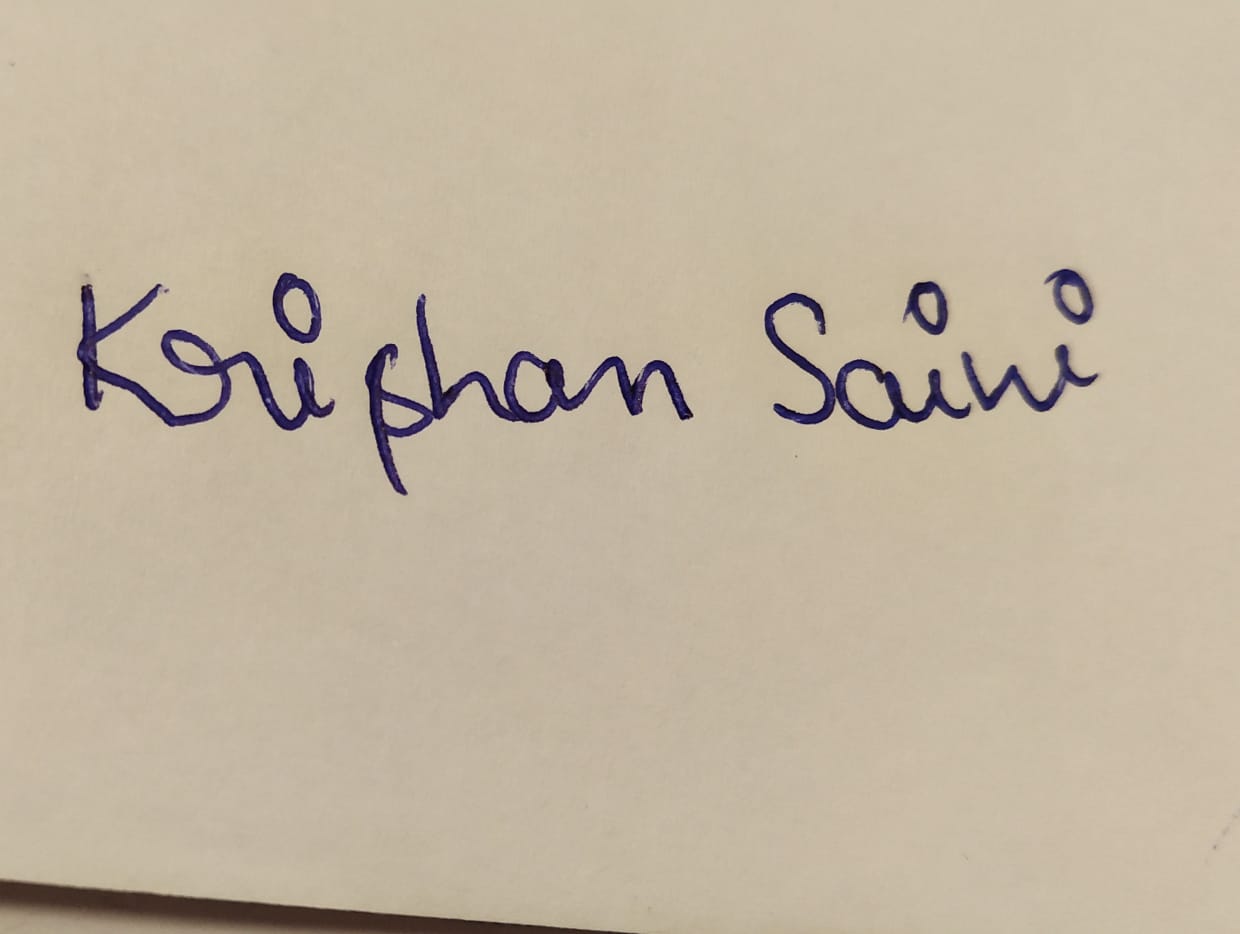 Krishan Saini